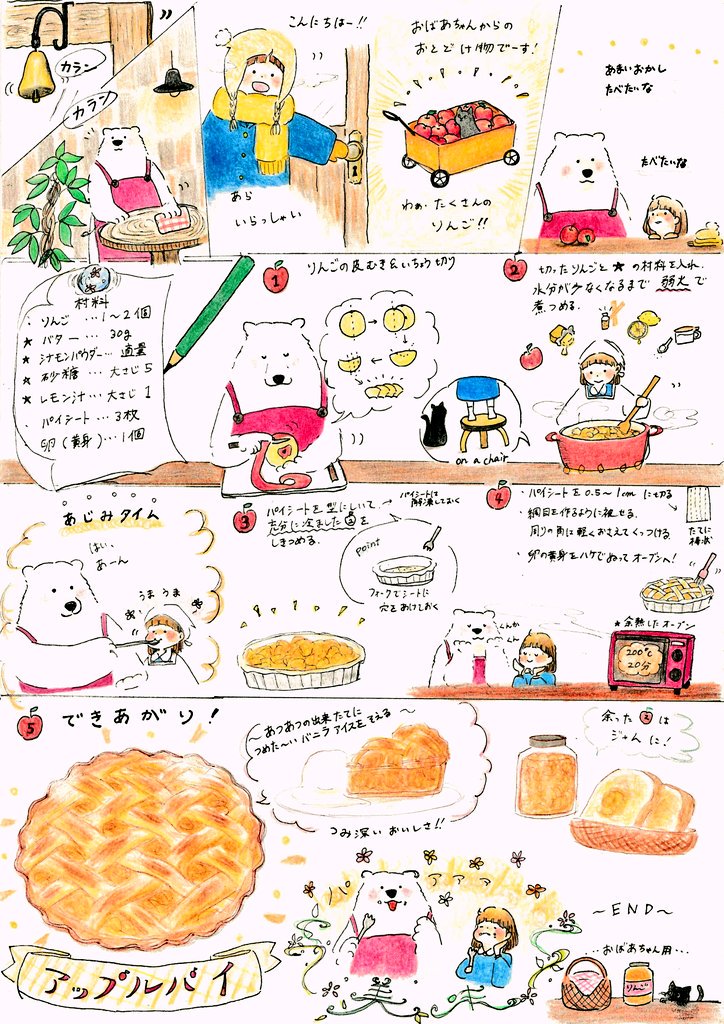 カラン
カラン
こんにちはー!!
あら
いらっしゃい
おばあちゃんからの
おとどけ物でーす!
わぁ・たくさんの
りんご!!
あまいおかし
たべたいな
たべたいな
材料
・りんご …1〜2個
★バター … 30g
★シナモンパウダー… 適量
★砂糖… 大さじ5
★レモン汁… 大さじ1
・パイシート… 3枚
・卵(黄身)… 1個
1 りんごの皮むき&いちょう切り
2 切ったりんごと★の材料を入れ、
水分が少なくなるまで弱火で
煮つめる。
on a chair
あじみタイム
はい、
あーん
うまうま
3 パイシートを型にしいて、
充分に冷ました2を
しきつめる。
パイシートは
解凍しておく
Point
フォークでシートに
穴をあけておく
4 ・パイシートを0.5〜1cmに切る
・網目を作るように被せる。
周りの肉は軽くおさえてくっつける
・卵の黄身をハケでぬってオーブンへ!
たてに
棒状
くんか
くん
★余熱したオーブン
200℃
20分
5 できあがり!
アップルパイ
〜あつあつの出来たてに
つめた〜いバニラアイスをそえる〜
つみ深いおいしさ!!
余った2は
ジャムに!
パアアァ
美味
〜END〜
…おばあちゃん用…
りんご